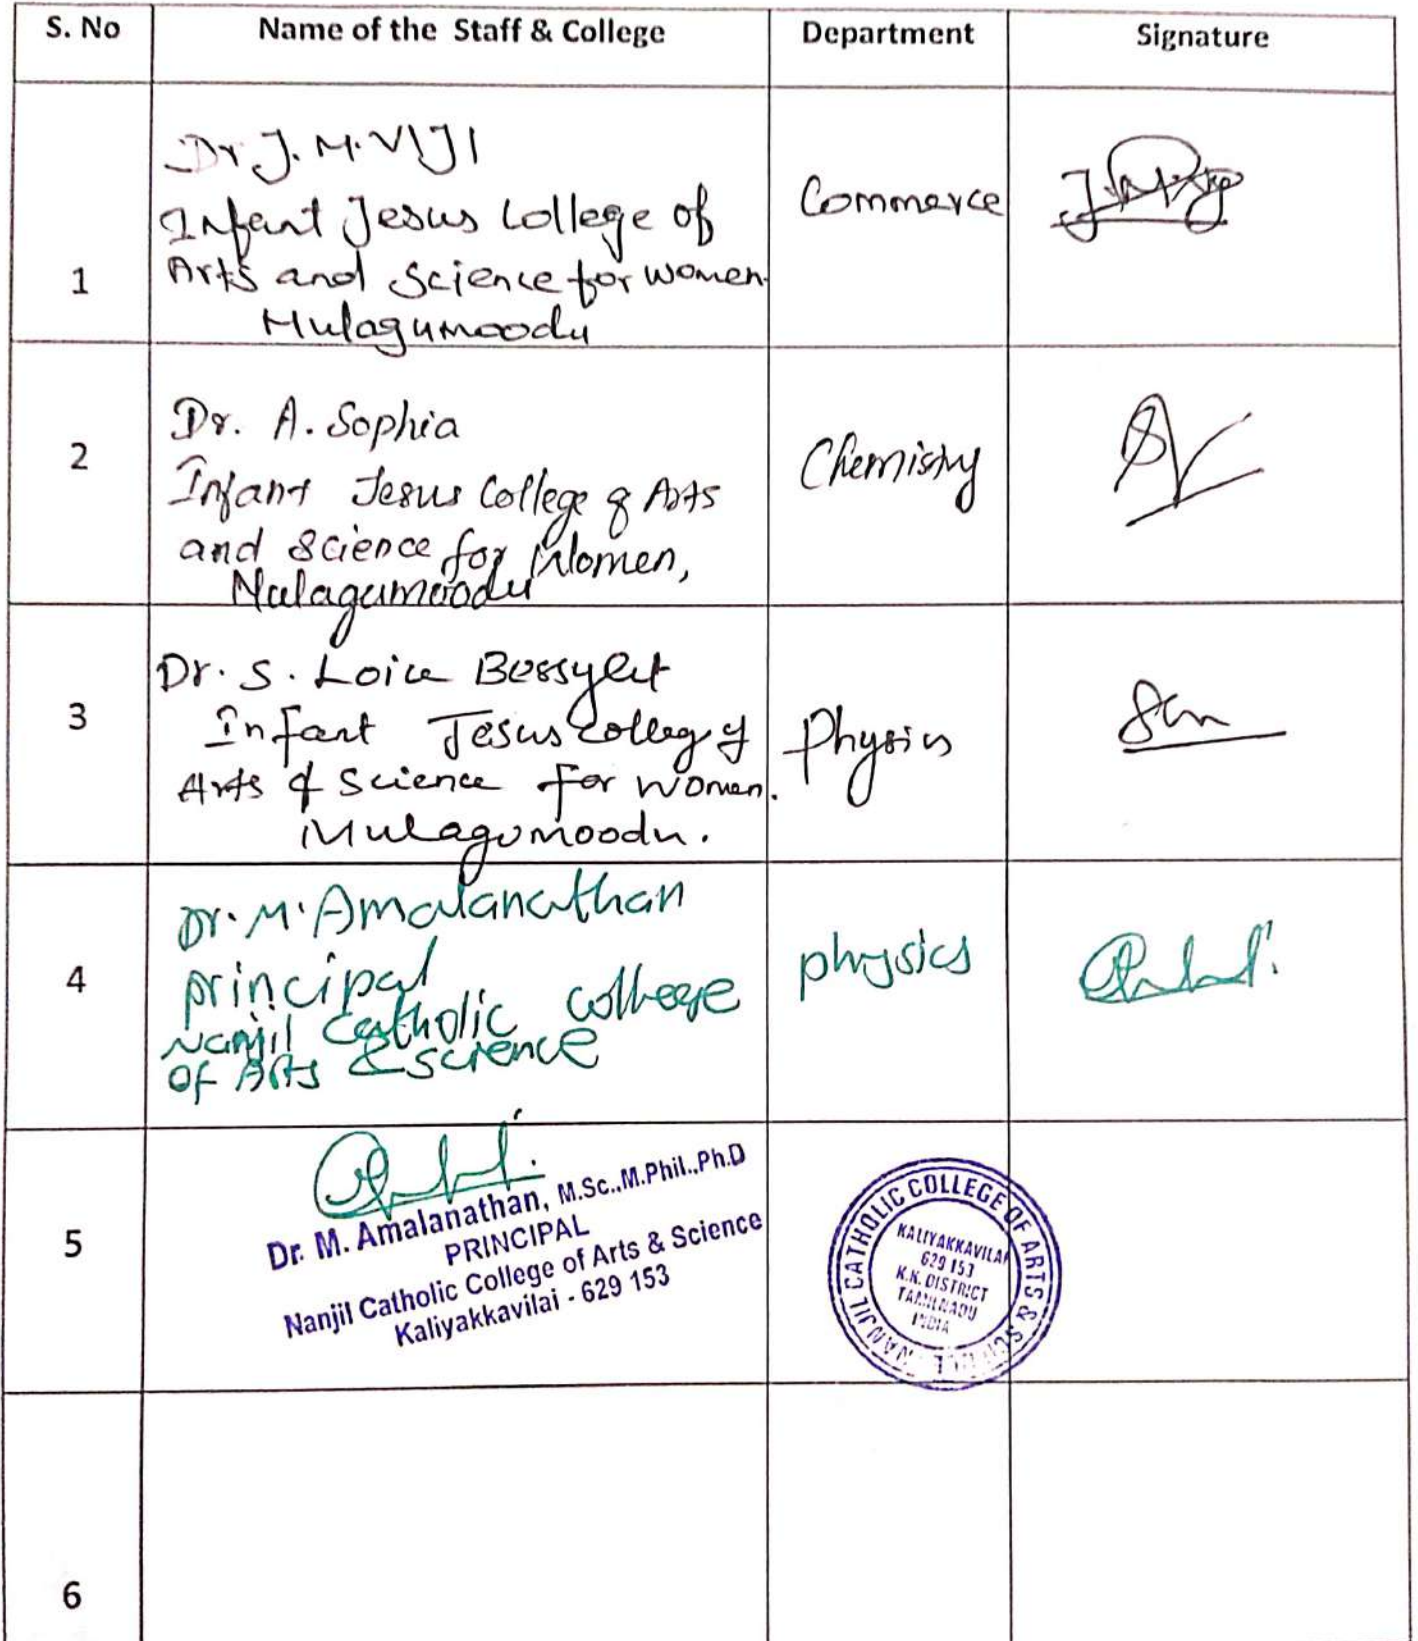 S. No Name of the Staff & College Department Signature
Dr J. M. VIJI
Infant Jesus College of
Arts and Science for Women
Mulagumoodu
1
Commerce
Dr. A. Sophia
2
Infant Jesus College of Arts
and Science for Women,
Mulagumoodu
Chemistry
Dr. S. Loice Bessyelit
3
Infant Jesus College of
Arts & Science for Women.
Mulagumoodu.
Physics
Dr. M. Amalanathan
4
principal
Nanjil Catholic College
of Arts & Science
physics
5
Dr. M. Amalanathan, M.Sc.,M.Phil.,Ph.D
PRINCIPAL
Nanjil Catholic College of Arts & Science
Kaliyakkavilai - 629 153
NANJIL CATHOLIC COLLEGE OF ARTS & SCIENCE
KALIYAKKAVILAI
629 153
K.K. DISTRICT
TAMILNADU
INDIA
6